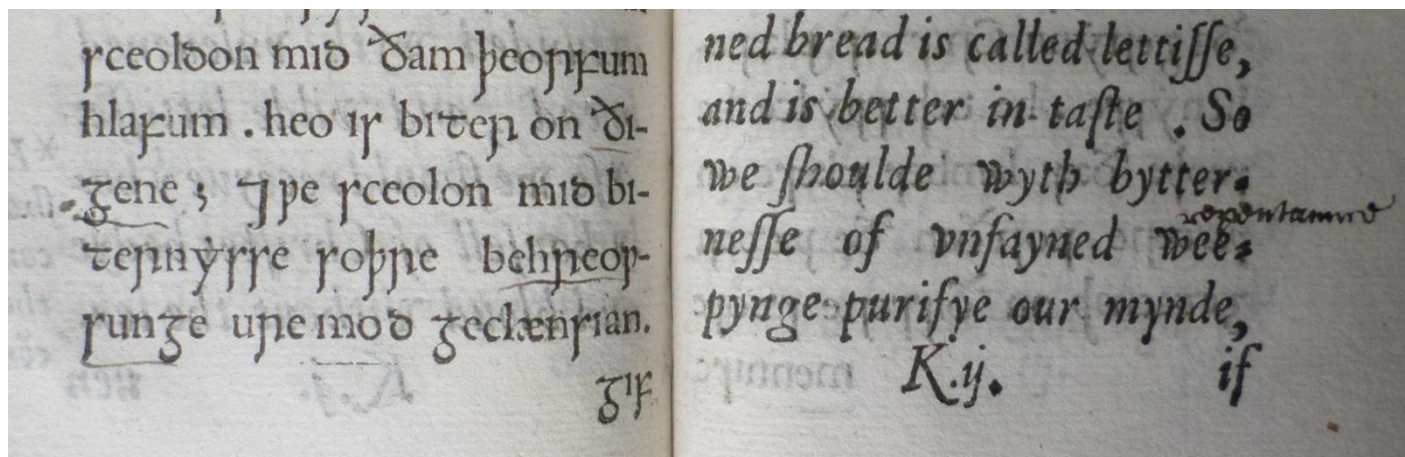 sceoldon mid ðam þeorfum
hlafum . heo is biter on ði-
gene ; ⁊ ƿe sceolon mid bi-
ternẏsse soþre behreoƿ-
sunge ure mod geclænsian.
gif
ned bread is called lettiſſe,
and is better in taſte . So
we ſhoulde wyth bytter-
repentaunce
neſſe of vnfayned wee-
pynge purifye our mynde,
K.ij. if